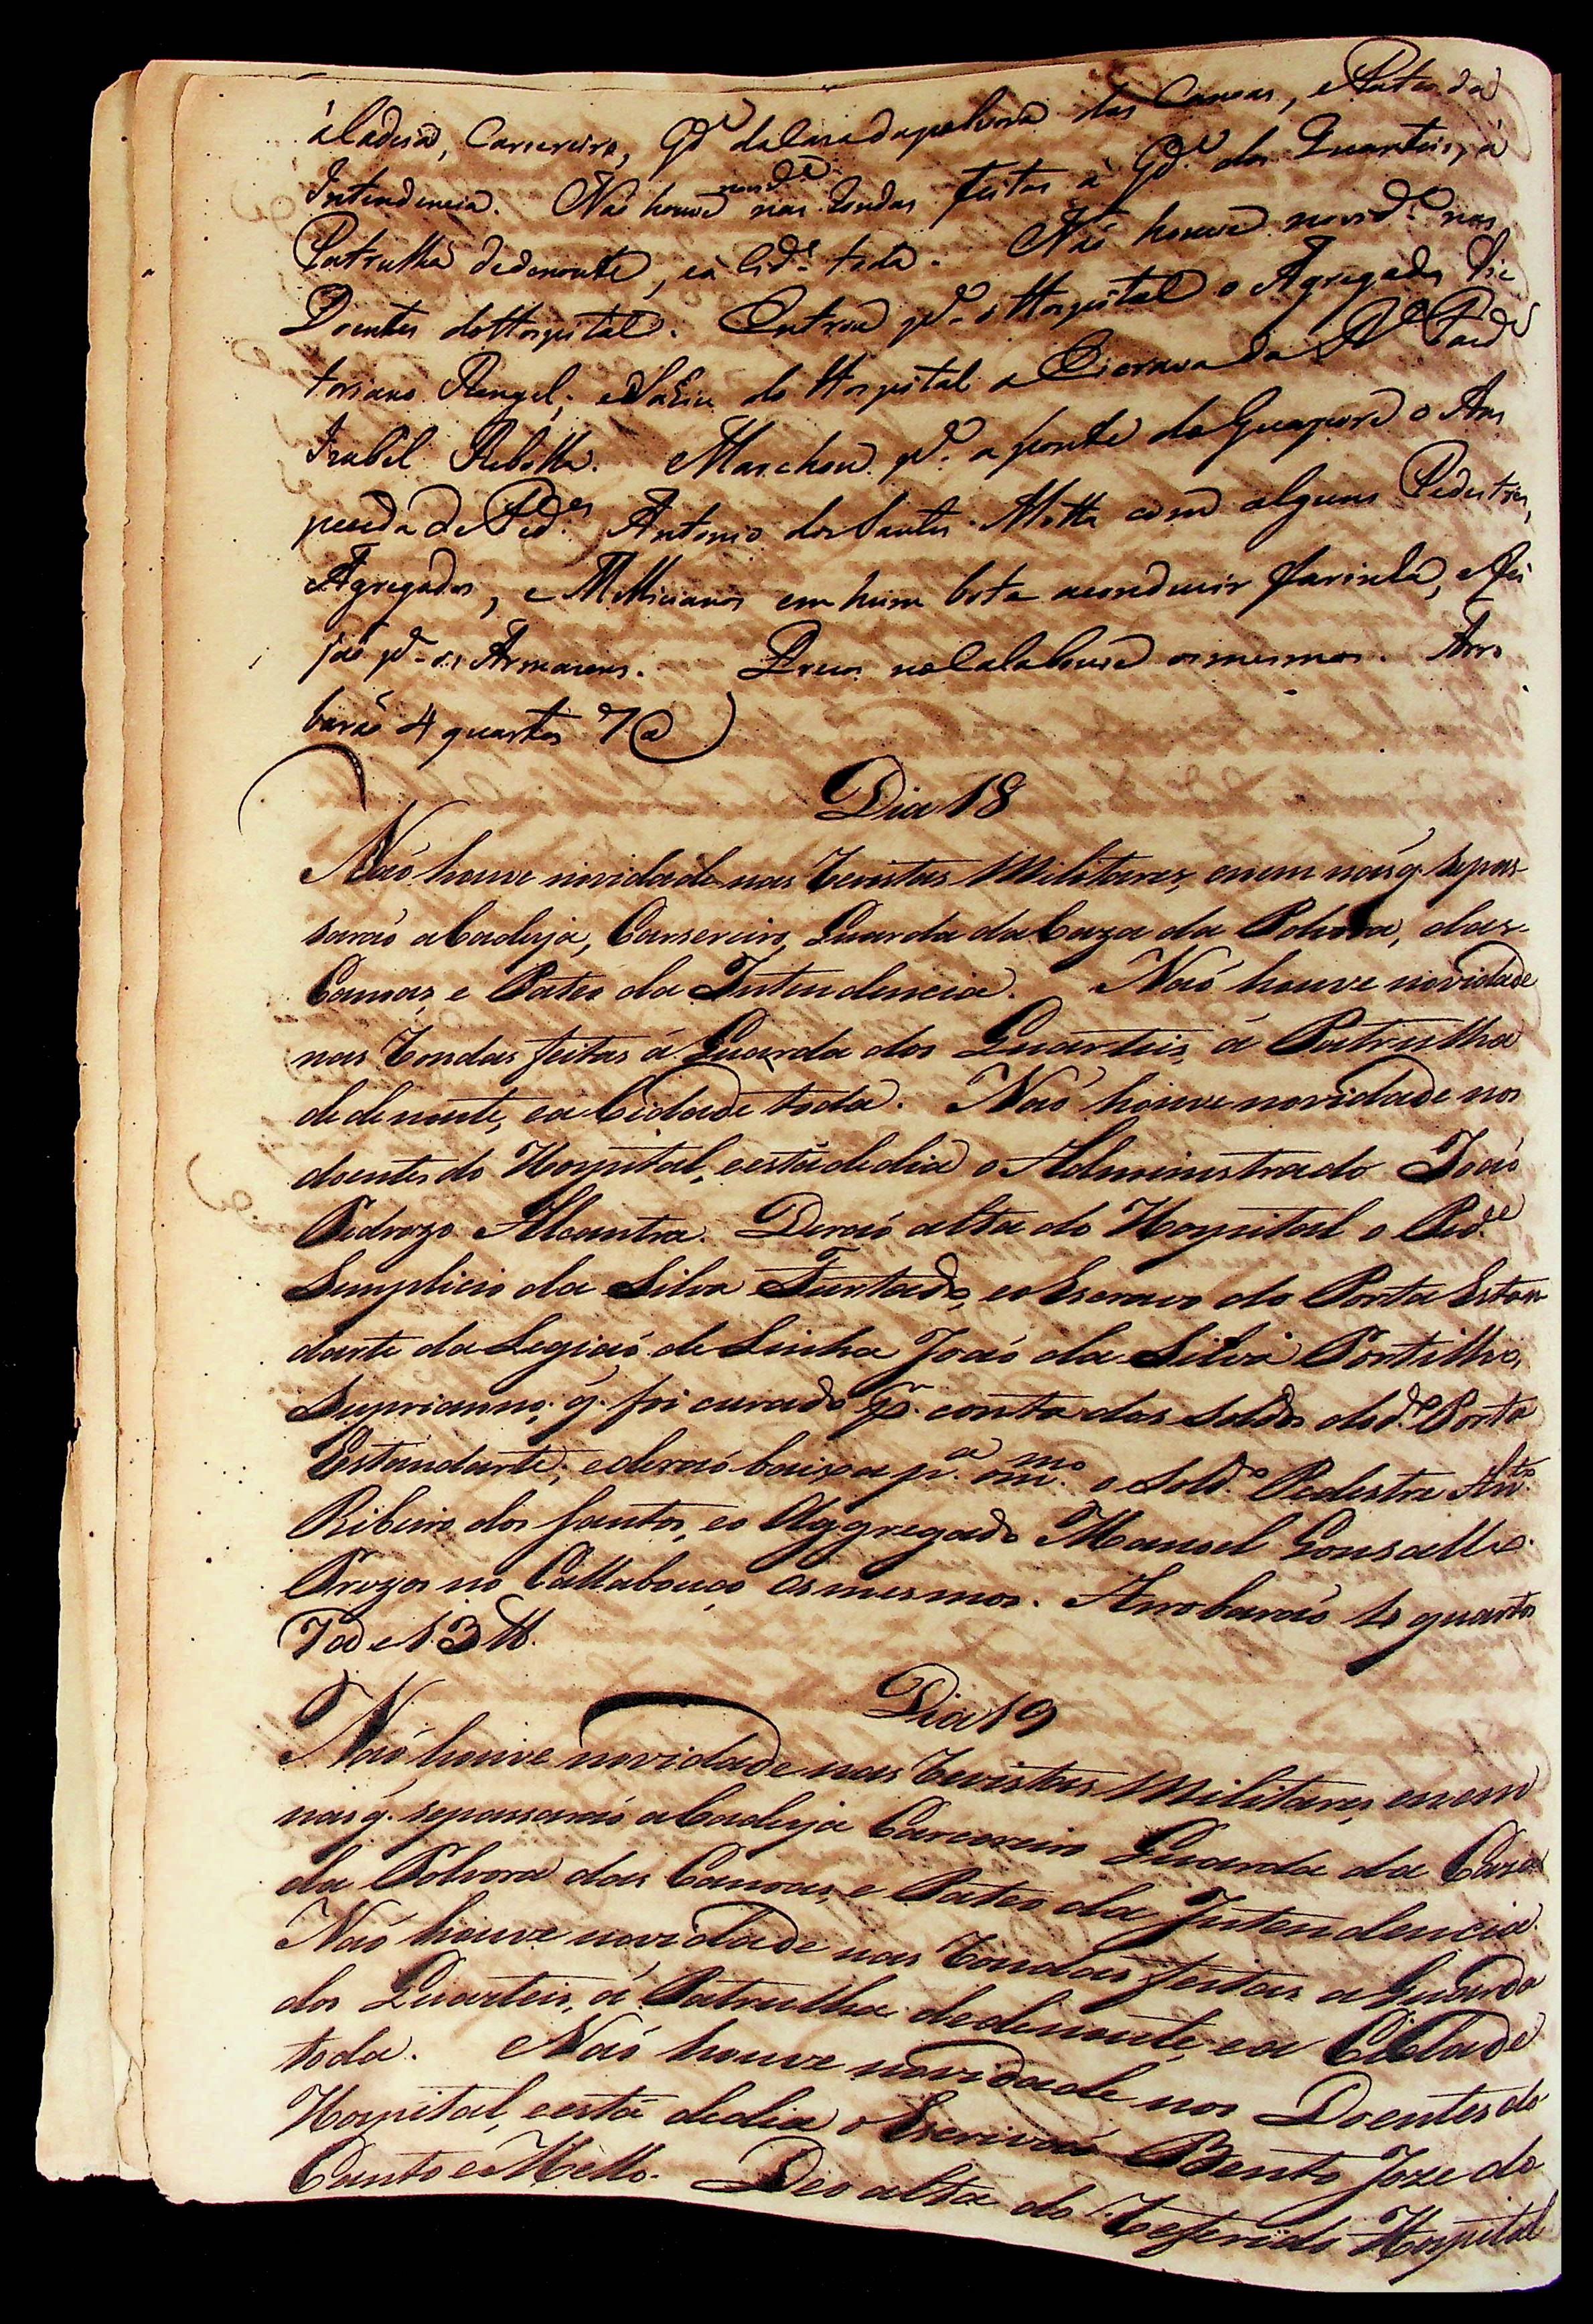 á Cadeia, Carsereiro, Gd.ª da Caza da polvora das Canoas, e Pateo da
Intendencia. Não houve novid.e nas Rondas feitas à Gd.ª dos Quarteis, á
Patrulha dedenoute, eá Cid.e toda. Não houve novid.e nos
Doentes do Hospital. Entrou p.ª o Hospital o Agregado Vic
toriano Rangel; eSahiu do Hospital a Escrava da
Izabel Rebolla. Marchou p.ª a ponte do Guaporé o Ans
peçada de Ped.es Antonio dos Santos Motta com alguns Pedestres,
Agregados, e Millicianos em hum bote aconduzir farinha, e fei
jão p.ª os Armazens. Prezos no Calabouço osmesmos. Arro
barão 4 quartos 7@
Dia 18
Naó houve novidade nas Revistas Militares, enem nas q. sepas-
saraó a Cadeja, Carsereiro, Guarda da Caza da Polvora, das
Canoas, e Pateo da Intendencia. Naó houve novidade
nas Rondas feitas á Guarda dos Quarteis, á Patrulha
dedenoute, ea Cidade toda. Naó houve novidade nos
doentes do Hospital, eestá dedia o Administrado Joaó
Pedrozo Alcantra. Deraó alta do Hospital o Ped.e
Simplicio da Silva Furtado, eo Escravo do Porta Estan
darte da Legiaó de Linha Joaó da Silva Portilho,
Suprianno; q. foi curado p.r conta dos Soldos dod.º Porta
Estandarte; ederaó baixa p.ª om.mo o Sold.º Pedestre An.to
Ribeiro dos Santos, eo Aggregado Manoel Gonsalles.
Prezos no Callabouço Osmesmos. Arrobaraó 4 quartos
7@ e 13 ℔.
Dia 19
Naó houve novidade nas Revistas Militares, enem
nas q. sepassaraó a Cadeja Carcereiro Guarda da Caza
da Polvora das Canoas, e Pateo da Intendencia.
Naó houve novidade nas Rondas feitas a Guarda
dos Quarteis, á Patrulha dedenoute, ea Cidade
toda. Naó houve novidade nos Doentes do
Hospital, eestá dedia o Escrivaó Bento Joze do
Canto e Mello. Deo alta do Referido Hospital